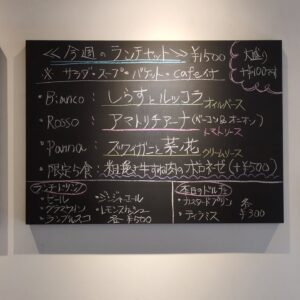 ≪今週のランチセット≫ ¥1500
※ サラダ・スープ・バケット・cafe付
大盛り
+¥100です
・Bianco : しらすとルッコラ オイルベース
・Rosso : アマトリチャーナ(ベーコン&オニオン) トマトソース
・Panna : ズワイガニと菜ノ花 クリームソース
・限定5食 : 粗挽き牛すね肉のボロネゼ (+¥500)
ランチドリンク
・ビール
・グラスワイン
・ランブルスコ
・ジンジャエール
・レモンスカッシュ
各 ¥500
本日のドルチェ
・カスタードプリン
・ティラミス
各 ¥300